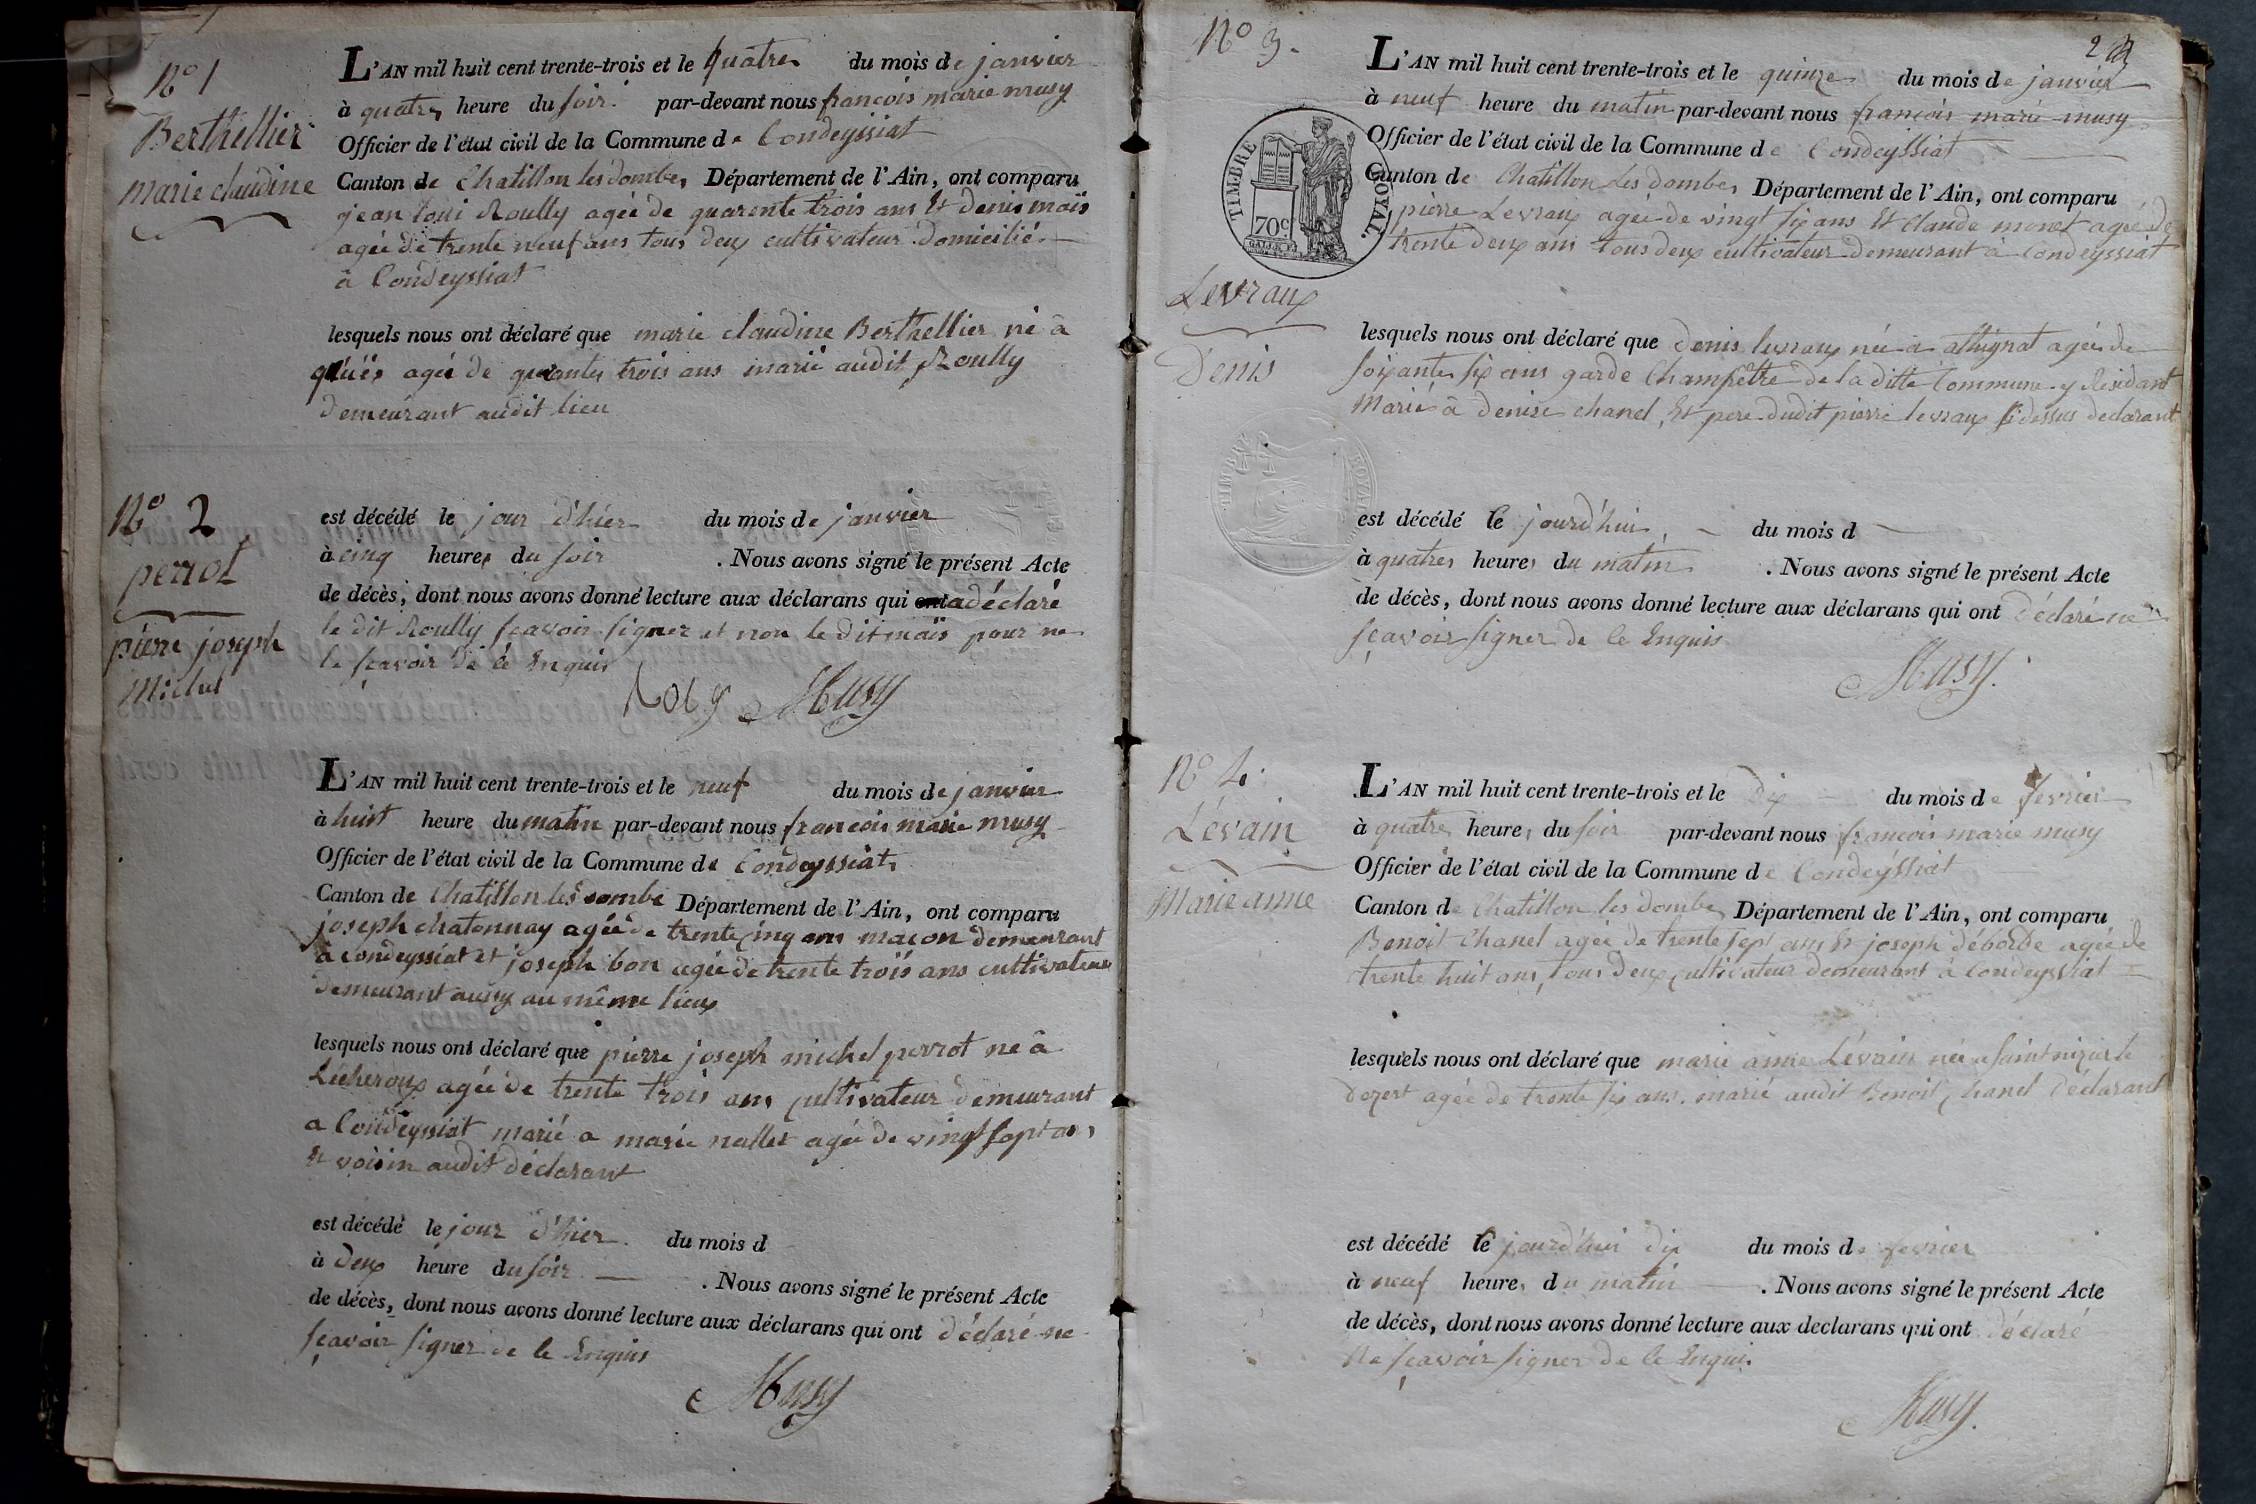 N° 1
Berthellier
marie claudine
L'AN mil huit cent trente-trois et le quatre du mois de janvier
à quatre heure du soir par-devant nous francois marie musy
Officier de l'état civil de la Commune de Condeyssiat
Canton de Chatillon les dombes Département de l'Ain, ont comparu
jean loui Roully agée de quarente trois ans Et denis mois
agée de trente neuf ans tous deux cultivateur domicilié
à Condeyssiat
lesquels nous ont déclaré que marie claudine Berthellier né à
agée de quarante trois ans marié audit Roully
demeurant audit lieu
est décédé le jour d'hier du mois de janvier
à cinq heures du soir . Nous avons signé le présent Acte
de décès, dont nous avons donné lecture aux déclarans qui ont a déclaré
le dit Roully sçavoir signer et non le dit mois pour ne
le sçavoir de ce Enquis
Roly Musy
N° 2
perrot
pierre joseph
Michel
L'AN mil huit cent trente-trois et le neuf du mois de janvier
à huit heure du matin par-devant nous francois marie musy
Officier de l'état civil de la Commune de Condeyssiat
Canton de Chatillon les dombe Département de l'Ain, ont comparu
joseph chatonnay agée de trente cinq ans macon demeurant
à Condeyssiat et joseph bon agée de trente trois ans cultivateur
demeurant aussy au même lieux
lesquels nous ont déclaré que pierre joseph michel perrot né à
Lécheroux agée de trente trois ans cultivateur demeurant
a Condeyssiat marié a marie nallet agée de vingt sept ans
Et voisin audit déclarant
est décédé le jour d'hier du mois d
à deux heure du soir . Nous avons signé le présent Acte
de décès, dont nous avons donné lecture aux déclarans qui ont déclaré ne
sçavoir signer de ce Enquis
Musy
N° 3.
2
TIMBRE ROYAL.
70c
Levraux
Denis
L'AN mil huit cent trente-trois et le quinze du mois de janvier
à neuf heure du matin par-devant nous francois marie musy
Officier de l'état civil de la Commune de Condeyssiat
Canton de Chatillon Les dombes Département de l'Ain, ont comparu
pierre Levraux agée de vingt six ans Et Claude monet agée de
trente deux ans tous deux cultivateur demeurant à Condeyssiat
lesquels nous ont déclaré que denis levraux née a attignat agée de
soixante six ans garde Champêtre de la ditte Commune y Résidant
Marié à denise chanel, Et pere dudit pierre levraux si dessus declarant
TIMBRE ROYAL
est décédé le jourd'hui du mois d
à quatre heures du matin . Nous avons signé le présent Acte
de décès, dont nous avons donné lecture aux déclarans qui ont déclaré ne
sçavoir signer de ce Enquis
Musy.
N° 4.
Lévain
Marie anne
L'AN mil huit cent trente-trois et le dix du mois de fevrier
à quatre heures du soir par-devant nous francois marie musy
Officier de l'état civil de la Commune de Condeyssiat
Canton de Chatillon les dombes Département de l'Ain, ont comparu
Benoit Chanel agée de trente sept ans Et joseph déborde agée de
trente huit ans, tous deux cultivateur demeurant à Condeyssiat
lesquels nous ont déclaré que marie anne Lévain née a Saint nizier le
dezert agée de trente six ans. marié audit Benoit Chanel déclarant
est décédé le jourd'hui dix du mois de fevrier
à neuf heures du matin . Nous avons signé le présent Acte
de décès, dont nous avons donné lecture aux declarans qui ont déclaré
Ne sçavoir signer de ce Enqui.
Musy.